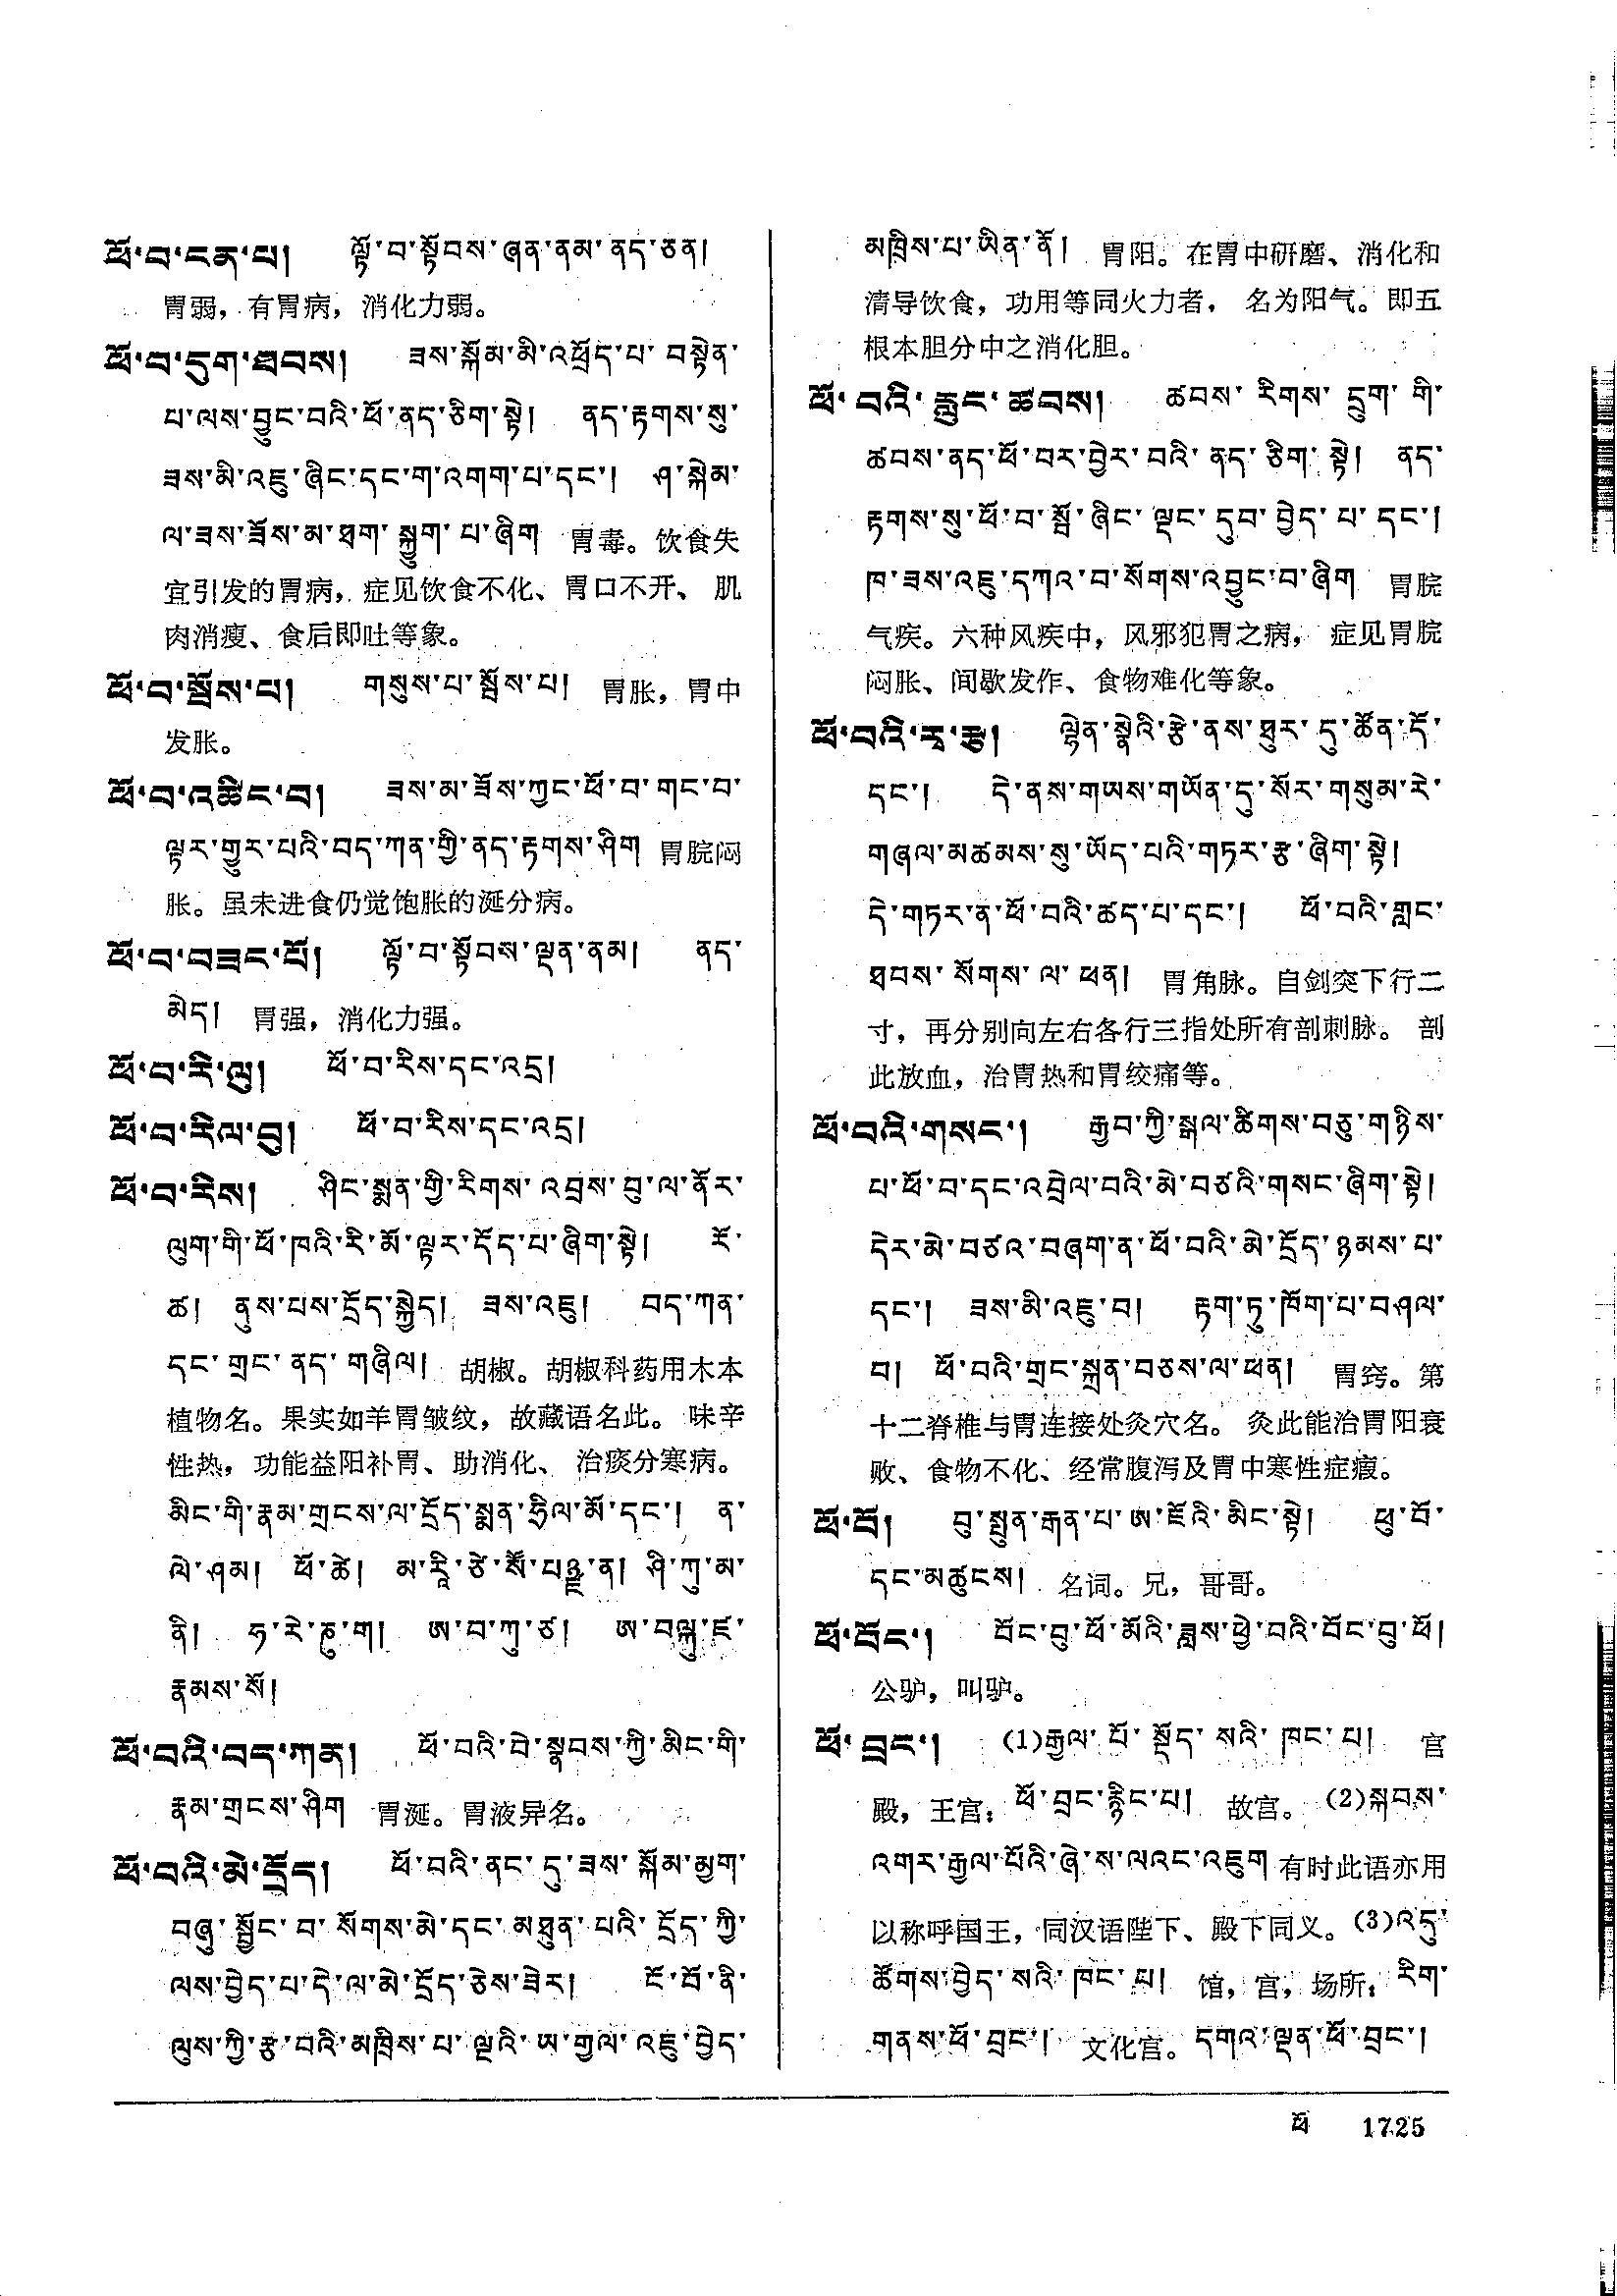 ཕོ་བ་ངན་པ། ལྟོ་བ་སྟོབས་ཞན་ནམ་ནད་ཅན།
胃弱，有胃病，消化力弱。
ཕོ་བ་དུག་ཐབས། ཟས་སྐོམ་མི་འཕྲོད་པ་བསྟེན་
པ་ལས་བྱུང་བའི་ཕོ་ནད་ཅིག་སྟེ། ནད་རྟགས་སུ་
ཟས་མི་འཇུ་ཞིང་དང་ག་འགག་པ་དང་། ཤ་སྐེམ་
ལ་ཟས་ཟོས་མ་ཐག་སྐྱུག་པ་ཞིག 胃毒。饮食失
宜引发的胃病，症见饮食不化、胃口不开、肌
肉消瘦、食后即吐等象。
ཕོ་བ་སྦོས་པ། གསུས་པ་སྦོས་པ། 胃胀，胃中
发胀。
ཕོ་བ་འཚིང་བ། ཟས་མ་ཟོས་ཀྱང་ཕོ་བ་གང་བ་
ལྟར་གྱུར་པའི་བད་ཀན་གྱི་ནད་རྟགས་ཤིག 胃脘闷
胀。虽未进食仍觉饱胀的涎分病。
ཕོ་བ་བཟང་པོ། ལྟོ་བ་སྟོབས་ལྡན་ནམ། ནད་
མེད། 胃强，消化力强。
ཕོ་བ་རི་ལུ། ཕོ་བ་རིས་དང་འདྲ།
ཕོ་བ་རིལ་བུ། ཕོ་བ་རིས་དང་འདྲ།
ཕོ་བ་རིས། ཤིང་སྨན་གྱི་རིགས་འབྲས་བུ་ལ་ནོར་
ལུག་གི་ཕོ་ཁའི་རི་མོ་ལྟར་དོད་པ་ཞིག་སྟེ། རོ་
ཚ། ནུས་པས་དྲོད་སྐྱེད། ཟས་འཇུ། བད་ཀན་
དང་གྲང་ནད་གཞིལ། 胡椒。胡椒科药用木本
植物名。果实如羊胃皱纹，故藏语名此。味辛
性热，功能益阳补胃、助消化、治痰分寒病。
མིང་གི་རྣམ་གྲངས་ལ་དྲོད་སྨན་ཧྲིལ་མོ་དང་། ན་
ལེ་ཤམ། ཕོ་ཚེ། ཤི་ཀྲུ་མ་
ནི། ཧ་རེ་ཎུ་ག། ཨ་བ་ཀུ་ཙ།
རྣམས་སོ།
ཕོ་བའི་བད་ཀན། ཕོ་བའི་བེ་སྣབས་ཀྱི་མིང་གི་
རྣམ་གྲངས་ཤིག 胃涎。胃液异名。
ཕོ་བའི་མེ་དྲོད། ཕོ་བའི་ནང་དུ་ཟས་སྐོམ་མྱག་
བཞུ་སྦྱོང་བ་སོགས་མེ་དང་མཐུན་པའི་དྲོད་ཀྱི་
ལས་བྱེད་པ་དེ་ལ་མེ་དྲོད་ཅེས་ཟེར། ངོ་བོ་ནི་
ལུས་ཀྱི་རྩ་བའི་མཁྲིས་པ་ལྔའི་ཡ་གྱལ་འཇུ་བྱེད་
མཁྲིས་པ་ཡིན་ནོ། 胃阳。在胃中研磨、消化和
清导饮食，功用等同火力者，名为阳气。即五
根本胆分中之消化胆。
ཕོ་བའི་རླུང་ཚབས། ཚབས་རིགས་དྲུག་གི་
ཚབས་ནད་ཕོ་བར་བྱེར་བའི་ནད་ཅིག་སྟེ། ནད་
རྟགས་སུ་ཕོ་བ་སྦོ་ཞིང་ལྡང་དུབ་བྱེད་པ་དང་།
ཁ་ཟས་འཇུ་དཀའ་བ་སོགས་འབྱུང་བ་ཞིག 胃脘
气疾。六种风疾中，风邪犯胃之病，症见胃脘
闷胀、间歇发作、食物难化等象。
ཕོ་བའི་རྭ་རྩ། ལྷེན་སྣེའི་རྩེ་ནས་ཐུར་དུ་ཚོན་དོ་
དང་། དེ་ནས་གཡས་གཡོན་དུ་སོར་གསུམ་རེ་
གཞལ་མཚམས་སུ་ཡོད་པའི་གཏར་རྩ་ཞིག་སྟེ།
དེ་གཏར་ན་ཕོ་བའི་ཚད་པ་དང་། ཕོ་བའི་གླང་
ཐབས་སོགས་ལ་ཕན། 胃角脉。自剑突下行二
寸，再分别向左右各行三指处所有剖刺脉。剖
此放血，治胃热和胃绞痛等。
ཕོ་བའི་གསང་། རྒྱབ་ཀྱི་སྒལ་ཚིགས་བཅུ་གཉིས་
པ་ཕོ་བ་དང་འབྲེལ་བའི་མེ་བཙའི་གསང་ཞིག་སྟེ།
དེར་མེ་བཙའ་བཞག་ན་ཕོ་བའི་མེ་དྲོད་ཉམས་པ་
དང་། ཟས་མི་འཇུ་བ། རྟག་ཏུ་ཁོག་པ་བཤལ་
བ། ཕོ་བའི་གྲང་སྐྲན་བཅས་ལ་ཕན། 胃窍。第
十二脊椎与胃连接处灸穴名。灸此能治胃阳衰
败、食物不化、经常腹泻及胃中寒性症瘕。
ཕོ་བོ། བུ་སྤུན་རྒན་པ་ཨ་ཇོའི་མིང་སྟེ། ཕུ་བོ་
དང་མཚུངས། 名词。兄，哥哥。
ཕོ་བོང་། བོང་བུ་ཕོ་མོའི་ཟླས་ཕྱེ་བའི་བོང་བུ་ཕོ།
公驴，叫驴。
ཕོ་བྲང་། (1)རྒྱལ་པོ་སྡོད་སའི་ཁང་པ། 宫
殿，王宫：ཕོ་བྲང་རྙིང་པ། 故宫。(2)སྐབས་
འགར་རྒྱལ་པོའི་ཞེ་ས་ལའང་འཇུག 有时此语亦用
以称呼国王，同汉语陛下、殿下同义。(3)འདུ་
ཚོགས་བྱེད་སའི་ཁང་པ། 馆，宫，场所：རིག་
གནས་ཕོ་བྲང་། 文化宫。དགའ་ལྡན་ཕོ་བྲང་།
ཕོ 1725